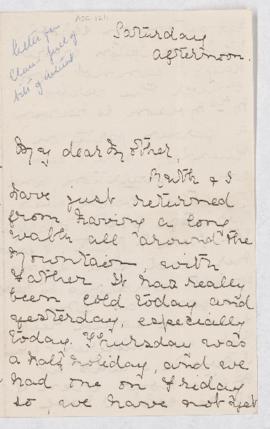 letter from
Clara
ADC 1211
Saturday
afternoon.
My dear Mother,
Ruth & I
have just returned
from having a long
walk all "around" the
Mountain, with
Father. It has really
been cold today and
yesterday, especially
today. Thursday was
a half holiday, and we
had one on Friday
so we have not got